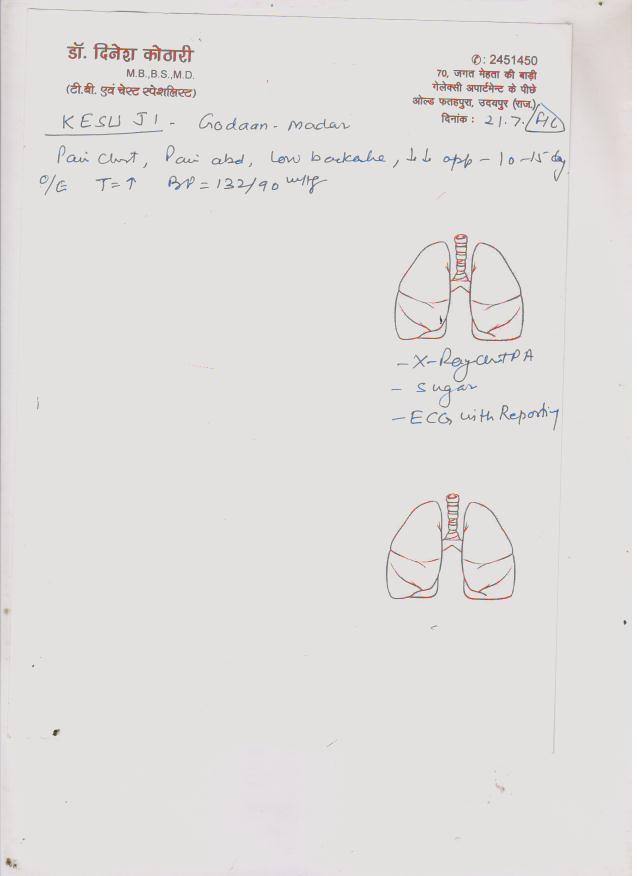 डॉ. दिनेश कोठारी
M.B.,B.S.,M.D.
(टी.बी. एवं चेस्ट स्पेशलिस्ट)
✆: 2451450
70, जगत मेहता की बाड़ी
गेलेक्सी अपार्टमेन्ट के पीछे
ओल्ड फतहपुरा, उदयपुर (राज.)
दिनांक : 21.7.
KESU JI - Godaan - Madar
Pain Chest, Pain abd, Low backache, ↓↓ app - 10-15 day
O/E T=↑ BP = 132/90 mmHg
- X-Ray Chest PA
- Sugar
- ECG with Reporting